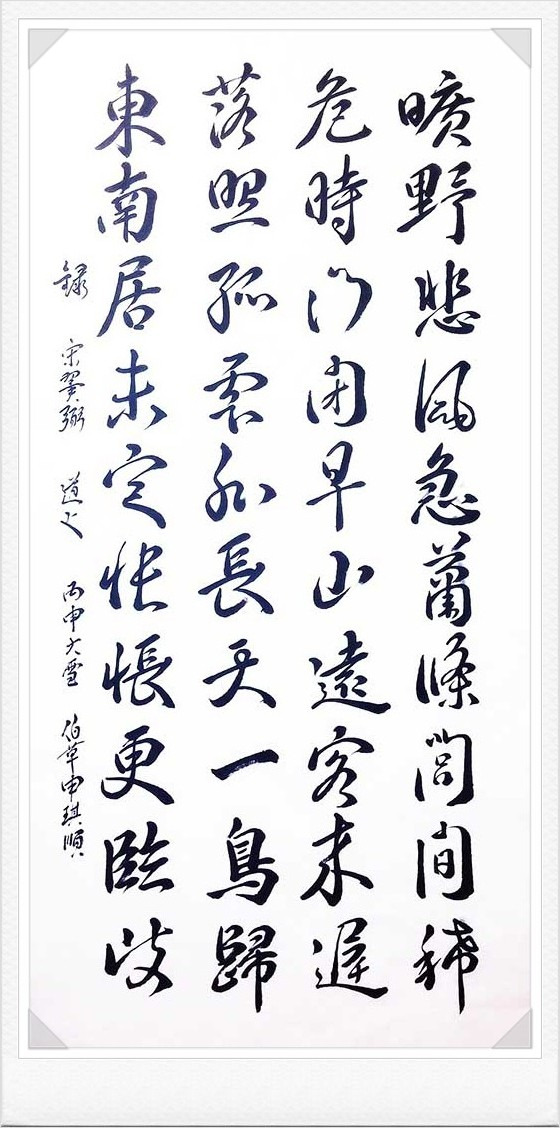 曠野悲風急蕭條閭間稀
危時門閉早山遠客來遲
落照孤雲外長天一鳥歸
東南居未定悵悵更臨歧
錄 宋翼弼 道上 丙申大雪 伯草申琪順